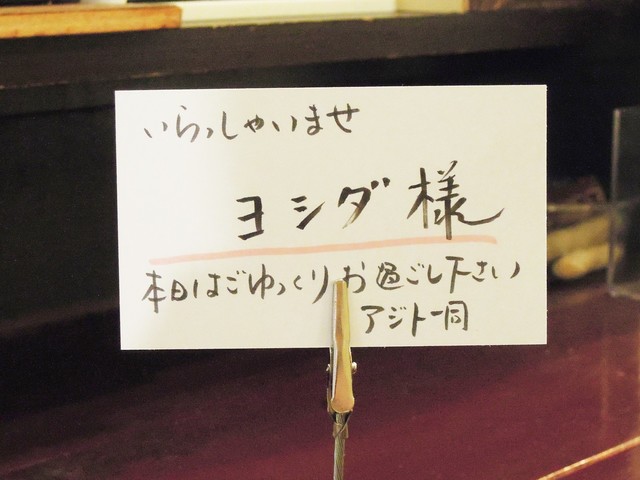 いらっしゃいませ
ヨシダ様
本日はごゆっくりお過ごし下さい
アジト一同